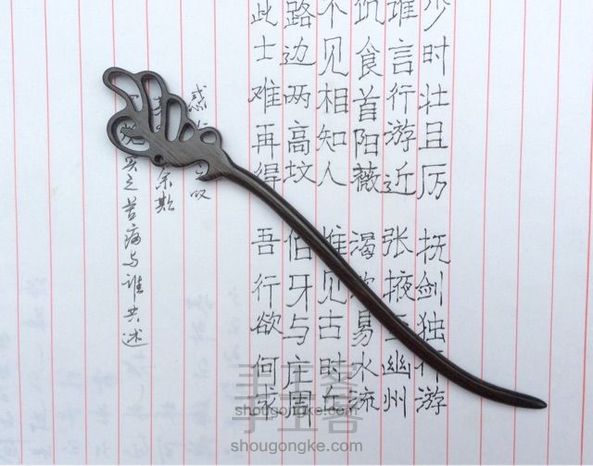 少时壮且厉 抚剑独行游
谁言行游近 张掖至幽州
饥食首阳薇 渴饮易水流
不见相知人 惟见古时丘
路边两高坟 伯牙与庄周
此士难再得 吾行欲何求
感 叹
余欺
之苦痛与谁共述
手工客
shougongke.com
手工客
shougongke.com